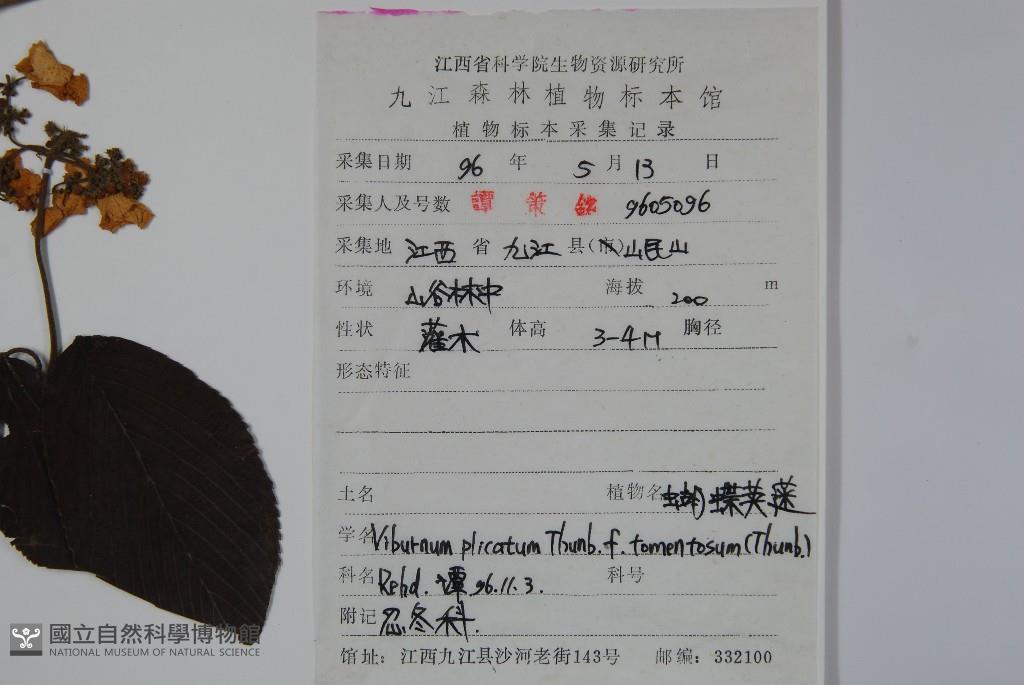 江西省科学院生物资源研究所
九江森林植物标本馆
植物标本采集记录
采集日期 96 年 5 月 13 日
采集人及号数 譚策銘 9605096
采集地 江西 省 九江 县(市)山民山
环境 山谷林中 海拔 200 m
性状 灌木 体高 3-4M 胸径
形态特征
土名 植物名 蝴蝶荚蒾
学名 Viburnum plicatum Thunb. f. tomentosum (Thunb.)
科名 Rehd. 谭 96.11.3. 科号
附记 忍冬科.
馆址: 江西九江县沙河老街143号 邮编: 332100
國立自然科學博物館
NATIONAL MUSEUM OF NATURAL SCIENCE